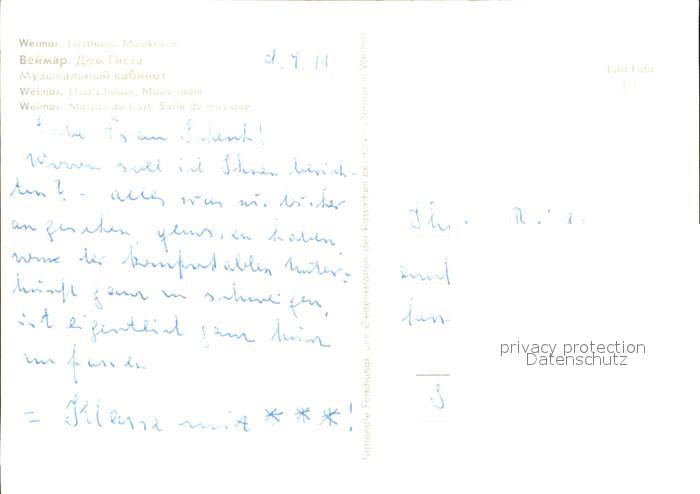 Weimar. Liszthaus, Musikraum
Веймар. Дом Листа
Музыкальный кабинет
Weimar. Liszt's house, Music room
Weimar. Maison de Liszt. Salle de musique
d. 7. 11.
Echt Foto
Liebe Frau
Wovon soll ich Ihnen berich-
ten? - alles was wir bisher
angesehen, genossen haben,
von der komfortablen Unter-
kunft ganz zu schweigen,
ist eigentlich ganz kurz
zu fassen
= Klasse mit * * *!
Nationale Forschungs- und Gedenkstätten der klassischen deutschen Literatur in Weimar
Ihr
und
privacy protection
Datenschutz